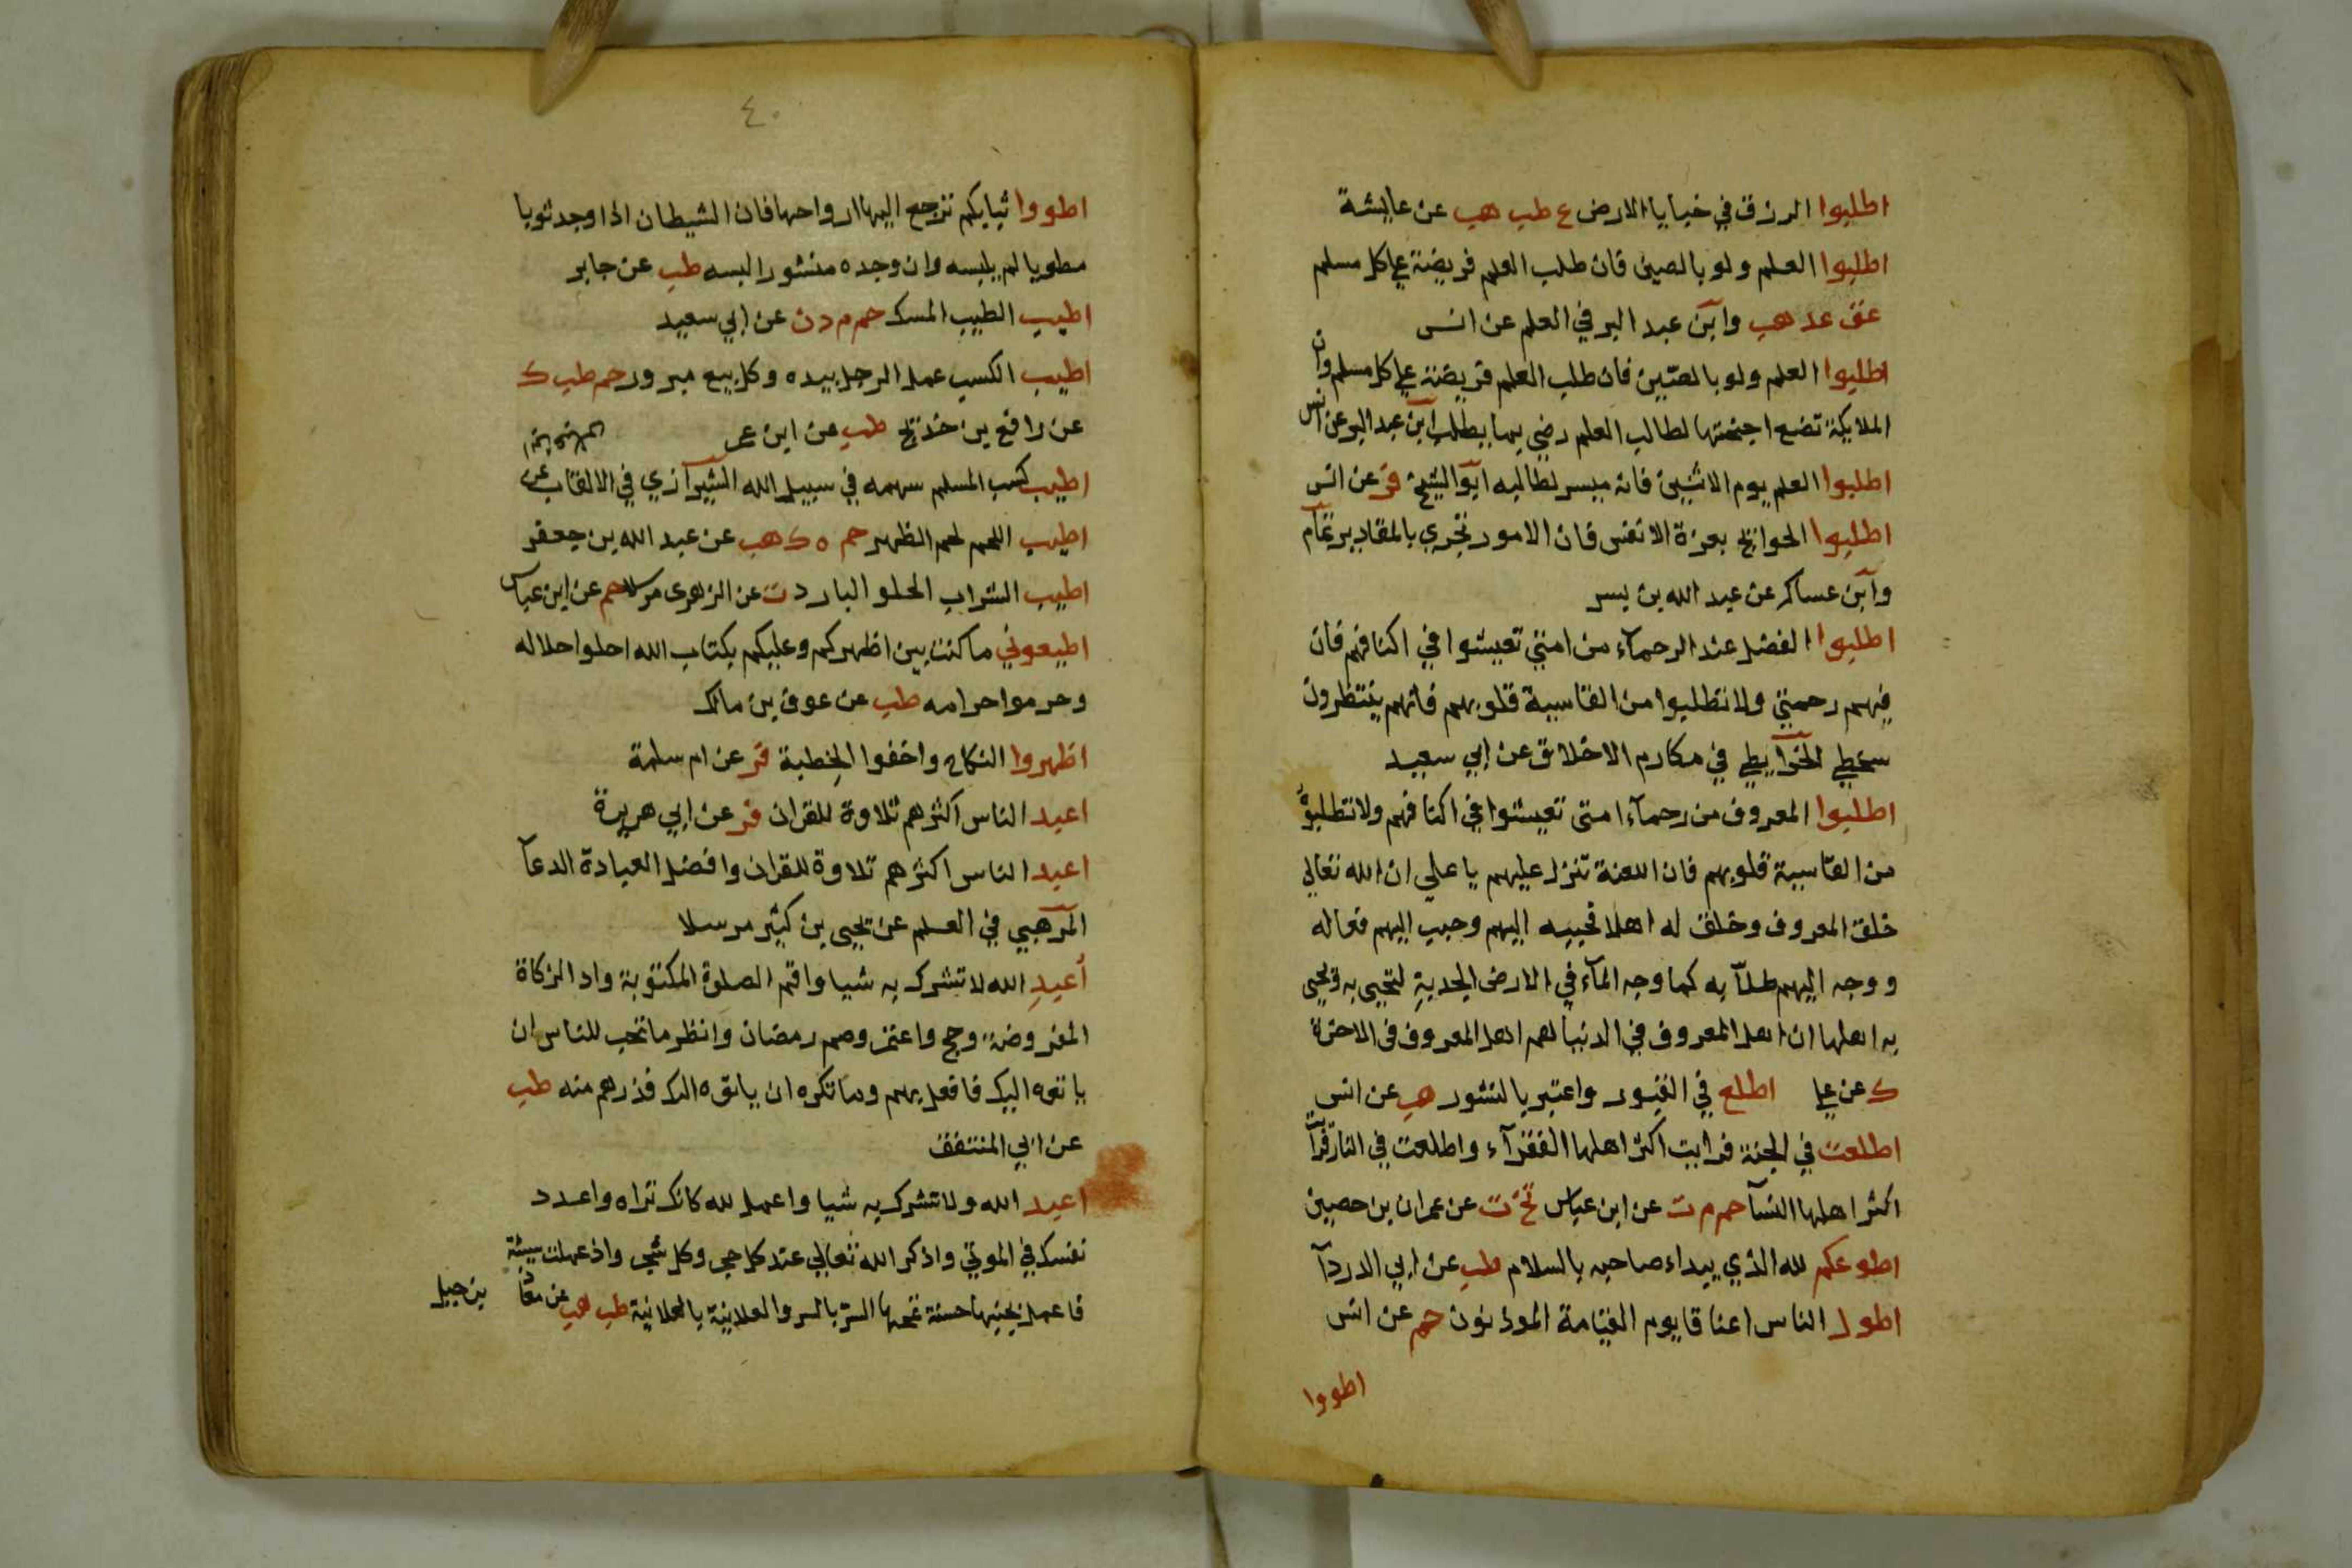 اطلبوا الرزق في خبايا الارض ع طب هب عن عايشة
اطلبوا العلم ولو بالصين فان طلب العلم فريضة علي كل مسلم
عق عد هب وابن عبد البر في العلم عن انس
اطلبوا العلم ولو بالصين فان طلب العلم فريضة علي كل مسلم وان
الملايكة تضع اجنحتها لطالب العلم رضي بما يطلب ابن عبد البر عن انس
اطلبوا العلم يوم الاثنين فانه ميسر لطالبه ابو الشيخ فر عن انس
اطلبوا الحوايج بعزة الانفس فان الامور تجري بالمقادير تمام
وابن عساكر عن عبد الله بن يسر
اطلبوا الفضل عند الرحمآء من امتي تعيشوا في اكنافهم فان
فيهم رحمتي ولا تطلبوا من القاسية قلوبهم فانهم ينتظرون
سخطي الخرايطي في مكارم الاخلاق عن ابي سعيد
اطلبوا المعروف من رحمآء امتى تعيشوا في اكنافهم ولا تطلبوه
من القاسية قلوبهم فان اللعنة تنزل عليهم يا علي ان الله تعالي
خلق المعروف وخلق له اهلا فحببه اليهم وحبب اليهم فعاله
ووجه اليهم طلآبه كما وجه المآء في الارض الجدبة لتحيى به ويحيى
به اهلها ان اهل المعروف في الدنيا هم اهل المعروف في الاخرة
ك عن علي اطلع في القبور واعتبر بالنشور هب عن انس
اطلعت في الجنة فرايت اكثر اهلها الفقرآء واطلعت في النار فرايت
اكثر اهلها النسآ حم م ت عن ابن عباس خ ت عن عمران بن حصين
اطوعكم لله الذي يبداء صاحبه بالسلام طب عن ابي الدردآ
اطول الناس اعناقا يوم القيامة الموذنون حم عن انس
اطووا
٤٠
اطووا ثيابكم ترجع اليها ارواحها فان الشيطان اذا وجد ثوبا
مطويا لم يلبسه وان وجده منشورا لبسه طب عن جابر
اطيب الطيب المسك حم م د ن عن ابي سعيد
اطيب الكسب عمل الرجل بيده وكل بيع مبرور حم طب ك
عن رافع بن خديج طب عن ابن عمر
اطيب كسب المسلم سهمه في سبيل الله الشيرازي في الالقاب عن
اطيب اللحم لحم الظهر حم ه ك هب عن عبد الله بن جعفر
اطيب الشراب الحلو البارد ت عن الزهرى مرسلا حم عن ابن عباس
اطيعوني ما كنت بين اظهركم وعليكم بكتاب الله احلوا حلاله
وحرموا حرامه طب عن عوف بن مالك
اظهروا النكاح واخفوا الخطبة فر عن ام سلمة
اعبد الناس اكثرهم تلاوة للقران فر عن ابي هريرة
اعبد الناس اكثرهم تلاوة للقران وافضل العبادة الدعآ
المرهبي في العلم عن يحيى بن كثير مرسلا
أعبد الله لا تشرك به شيا واقم الصلوة المكتوبة واد الزكاة
المفروضة وحج واعتمر وصم رمضان وانظر ما تحب للناس ان
ياتوه اليك فافعل بهم وما تكره ان ياتوه اليك فذرهم منه طب
عن ابي المنتفق
اعبد الله ولا تشرك به شيا واعمل لله كانك تراه واعدد
نفسك في الموتي واذكر الله تعالي عند كل حجر وكل شجر واذ عملت سيئة
فاعمل بجنبها حسنة تمحها السر بالسر والعلانية بالعلانية طب هب عن معاذ بن جبل